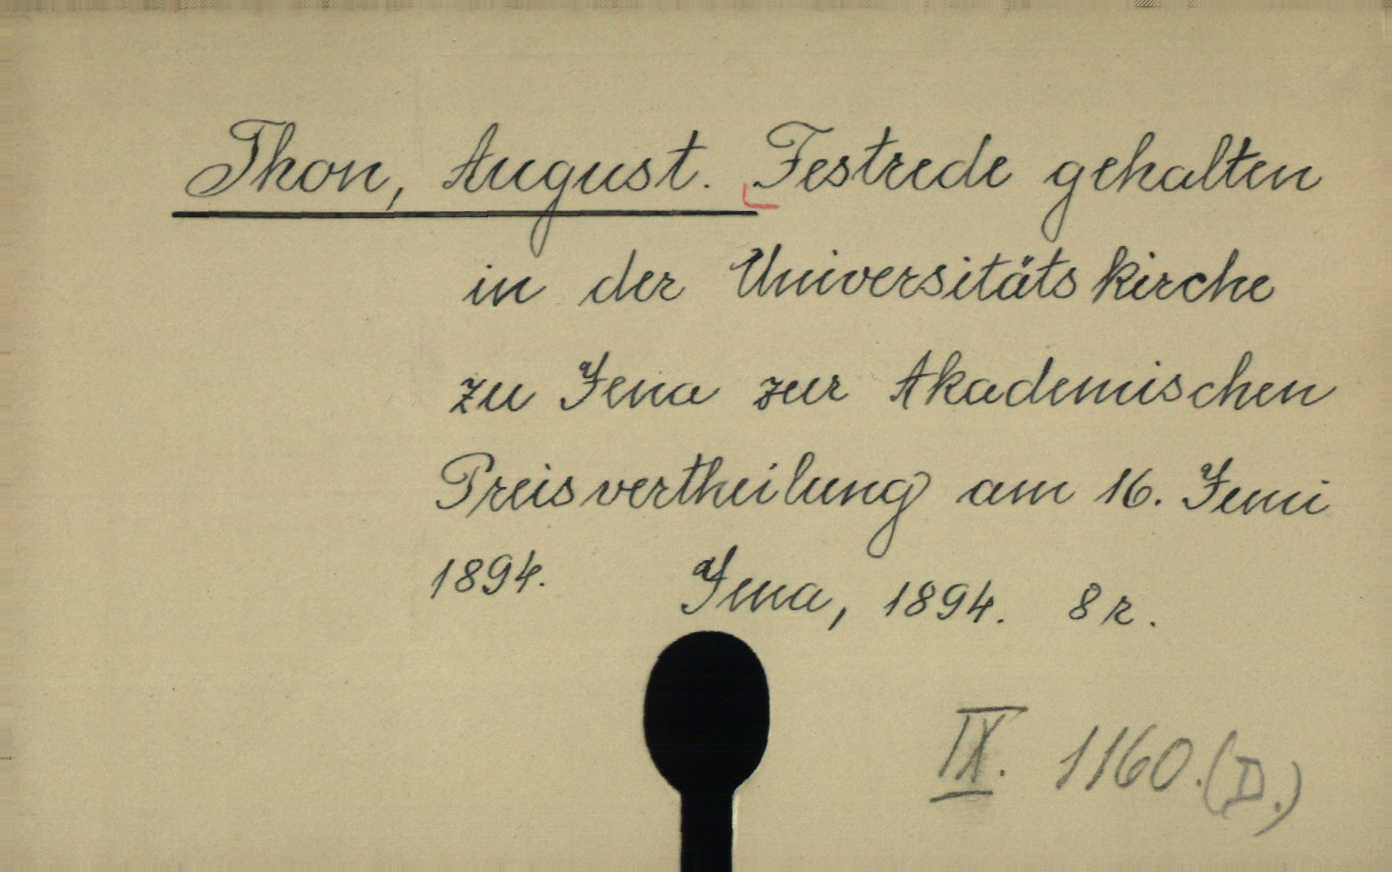 Thon, August. Festrede gehalten
in der Universitätskirche
zu Jena zur Akademischen
Preisvertheilung am 16. Juni
1894. Jena, 1894. 8 r.
IX. 1160. (D.)